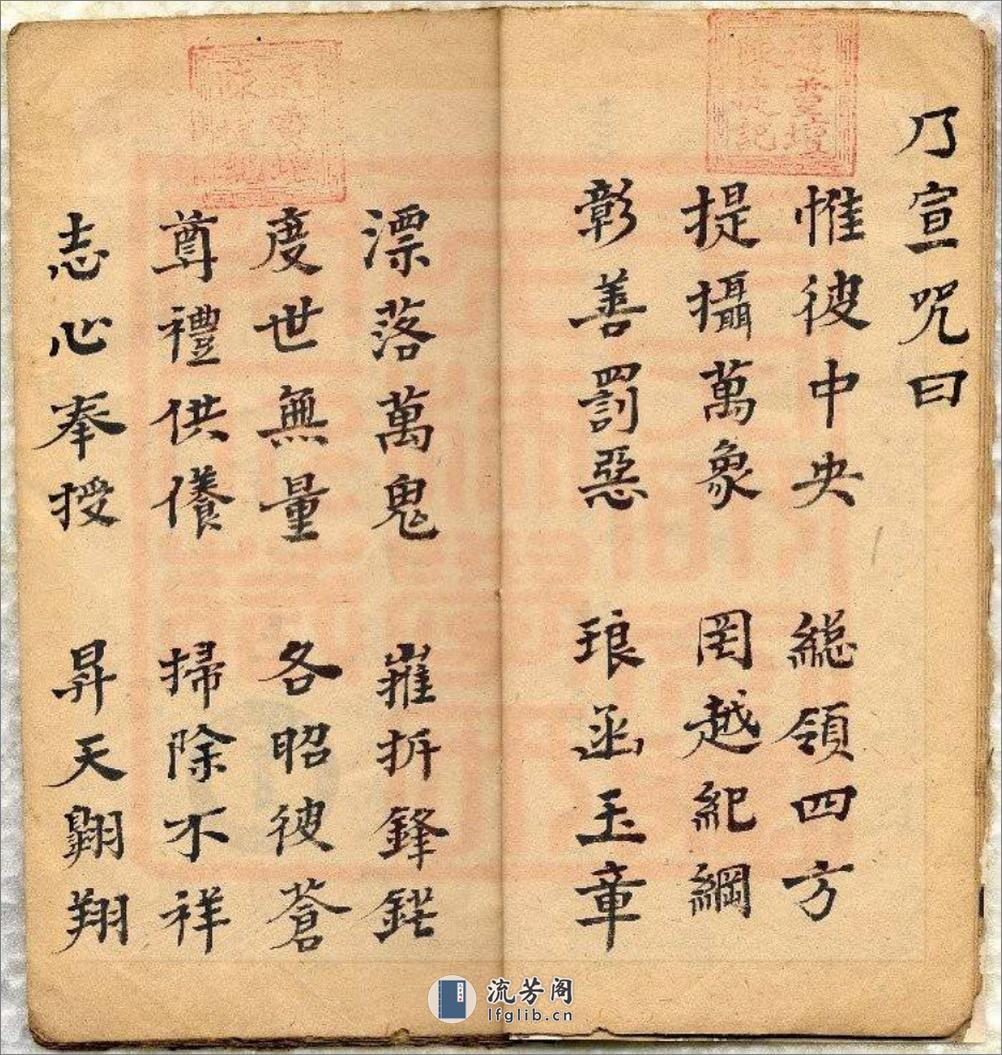 乃宣咒曰
惟彼中央 緫領四方
提攝萬象 罔越紀綱
彰善罰惡 琅函玉章
漂落萬鬼 摧折鋒鋩
度世無量 各昭彼蒼
尊禮供養 掃除不祥
志心奉授 昇天翱翔
流芳阁
lfglib.cn